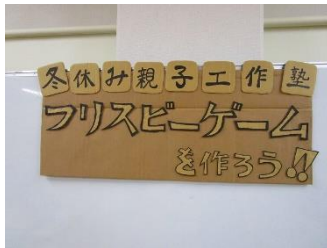 冬休み親子工作塾
フリスビーゲーム
を作ろう!!